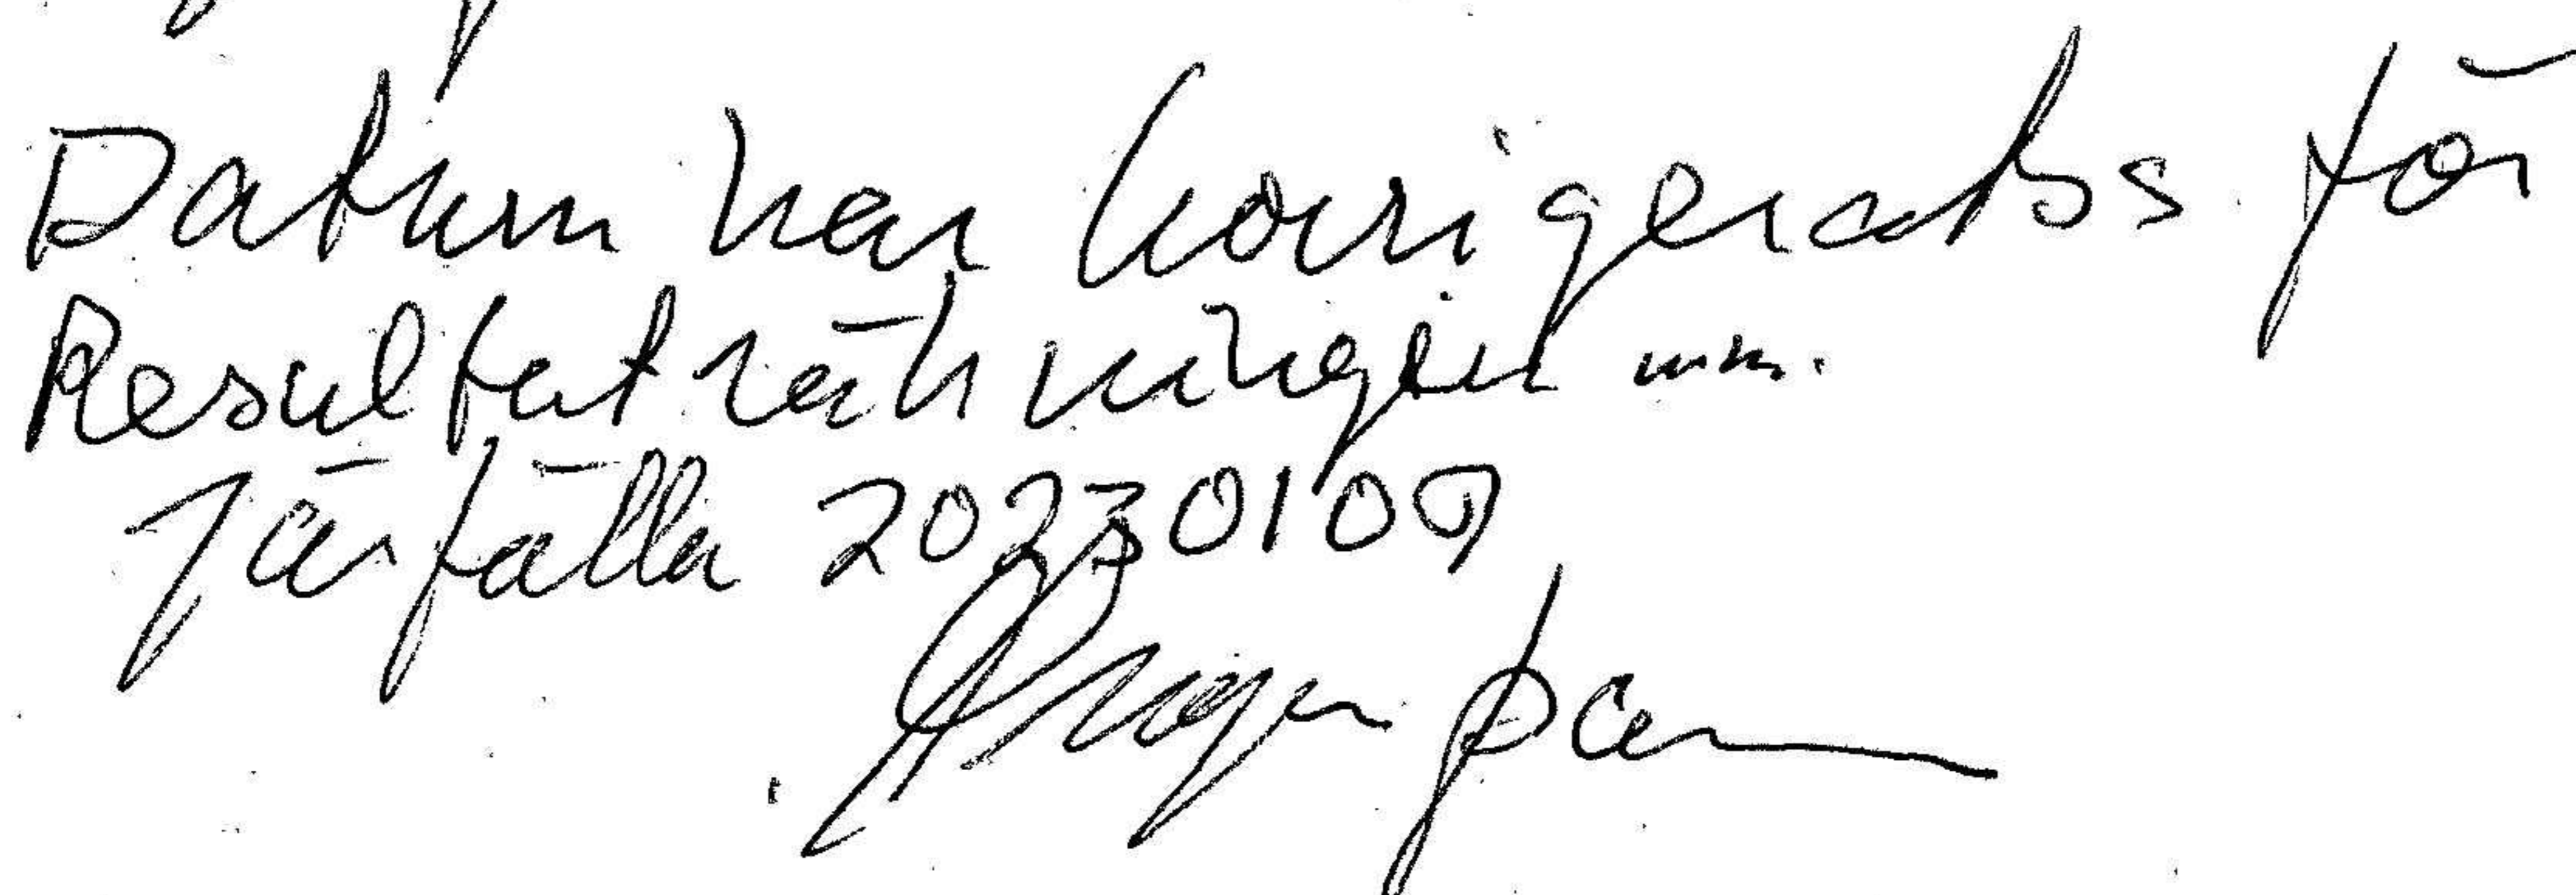 Datum har korrigerats för
Resultaträkningen mm.
Järfälla 20230109